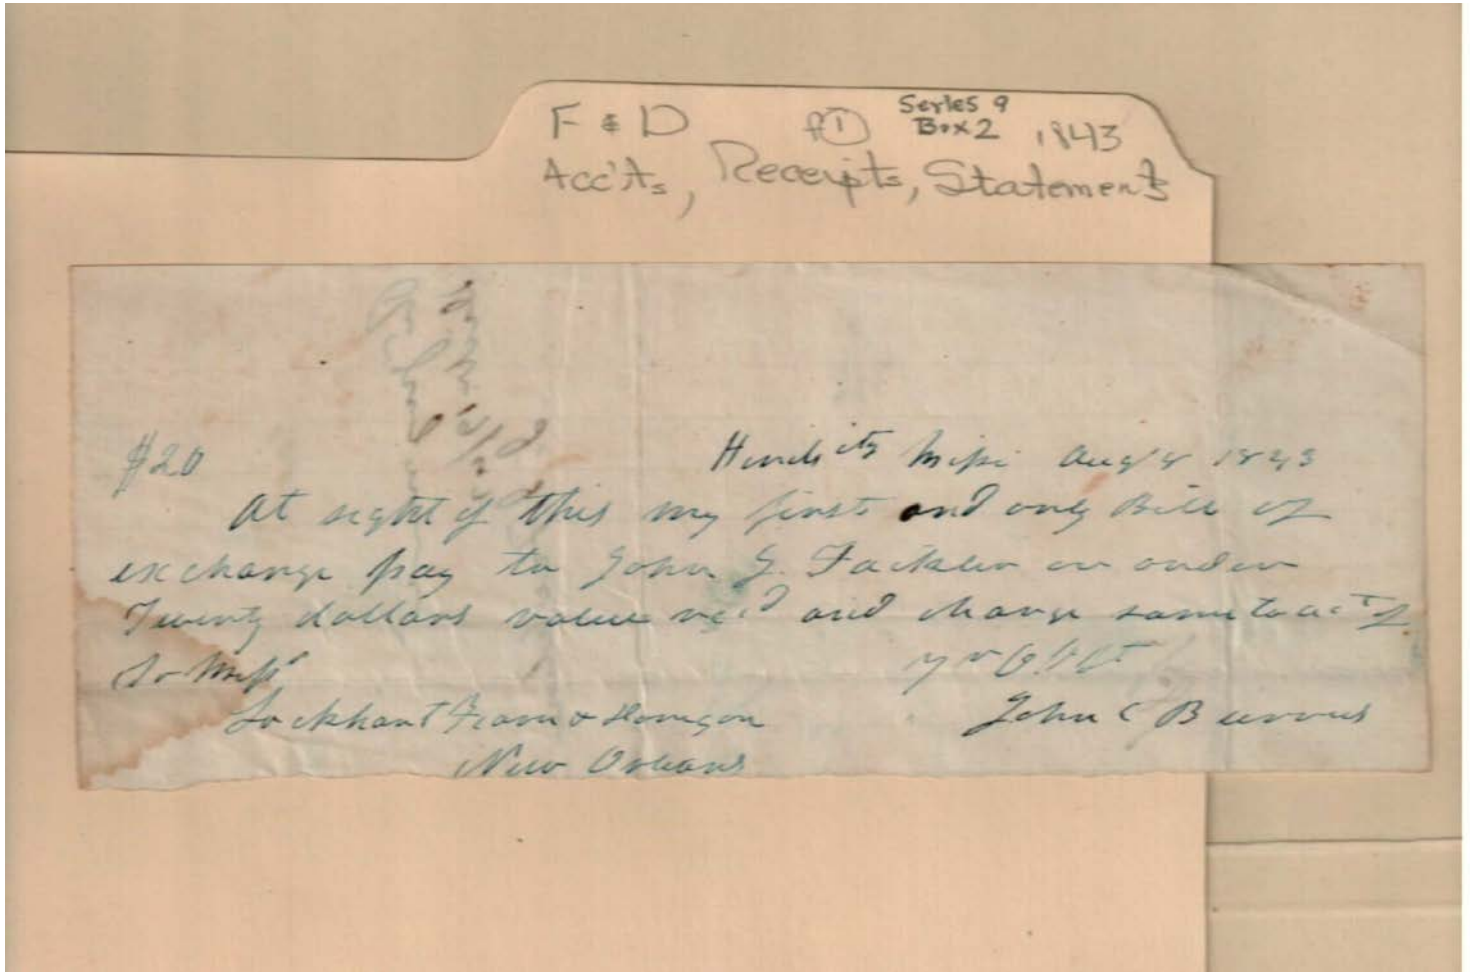 F & D f① Series 9
Box 2 1843
Acc'ts, Receipts, Statements
$20 Hinds cty Missi Aug 8 1843
At sight of this my first and only Bill of
exchange pay to John G. Fackler or order
Twenty dollars value recd and charge same to act of
To Messrs yr obt
Lockhart & John C Burrus
New Orleans